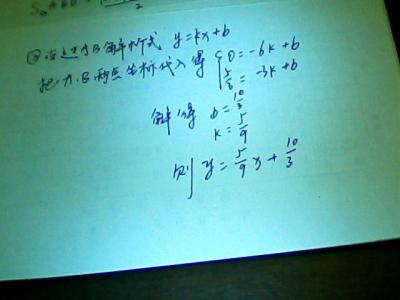 2
②设过AB解析式 y=kx+b
把A.B两点坐标代入得 { 0=-6k+b
5/3=-3k+b
解得 b=10/3
k=5/9
则 y=5/9x+10/3